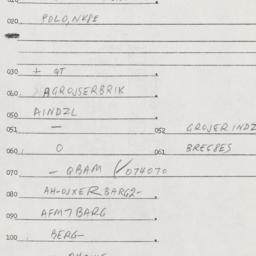 020. POLO, NKPE
030 + QT
040. AGROJSERBRIK
050 AINDZL
051 — 052 GROJER INDZ
060. O 061 BREGBES
070 — QBAM √074070
080 AH-OJXERBARG2-
090 AFM7BARG
100. BERG-